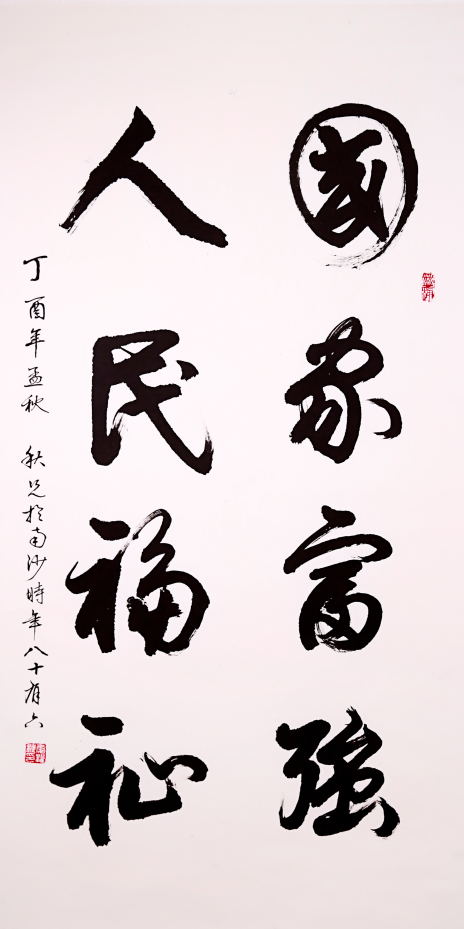 國家富強
人民福祉
丁酉年孟秋 秋光於南沙時年八十有六